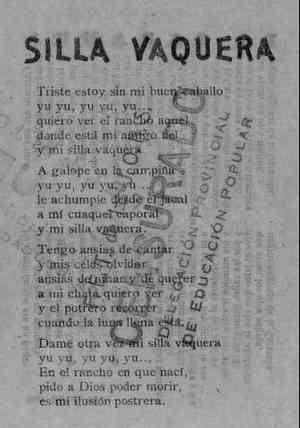 SILLA VAQUERA
Triste estoy sin mi buen caballo
yu yu, yu yu, yu...
quiero ver el rancho aquel
donde está mi amigo fiel
y mi silla vaquera
A galope en la campiña
yu yu, yu yu, yu...
le achumpie desde el jacal
a mi cuaquel caporal
y mi silla vaquera.
Tengo ansias de cantar
y mis celos olvidar
ansias de niñan y de querer
a mi chata quiero ver
y el potrero recorrer
cuando la luna llena está.
Dame otra vez mi silla vaquera
yu yu, yu yu, yu...
En el rancho en que nací,
pido a Dios poder morir,
es mi ilusión postrera.
DELEGACIÓN PROVINCIAL
DE EDUCACIÓN POPULAR